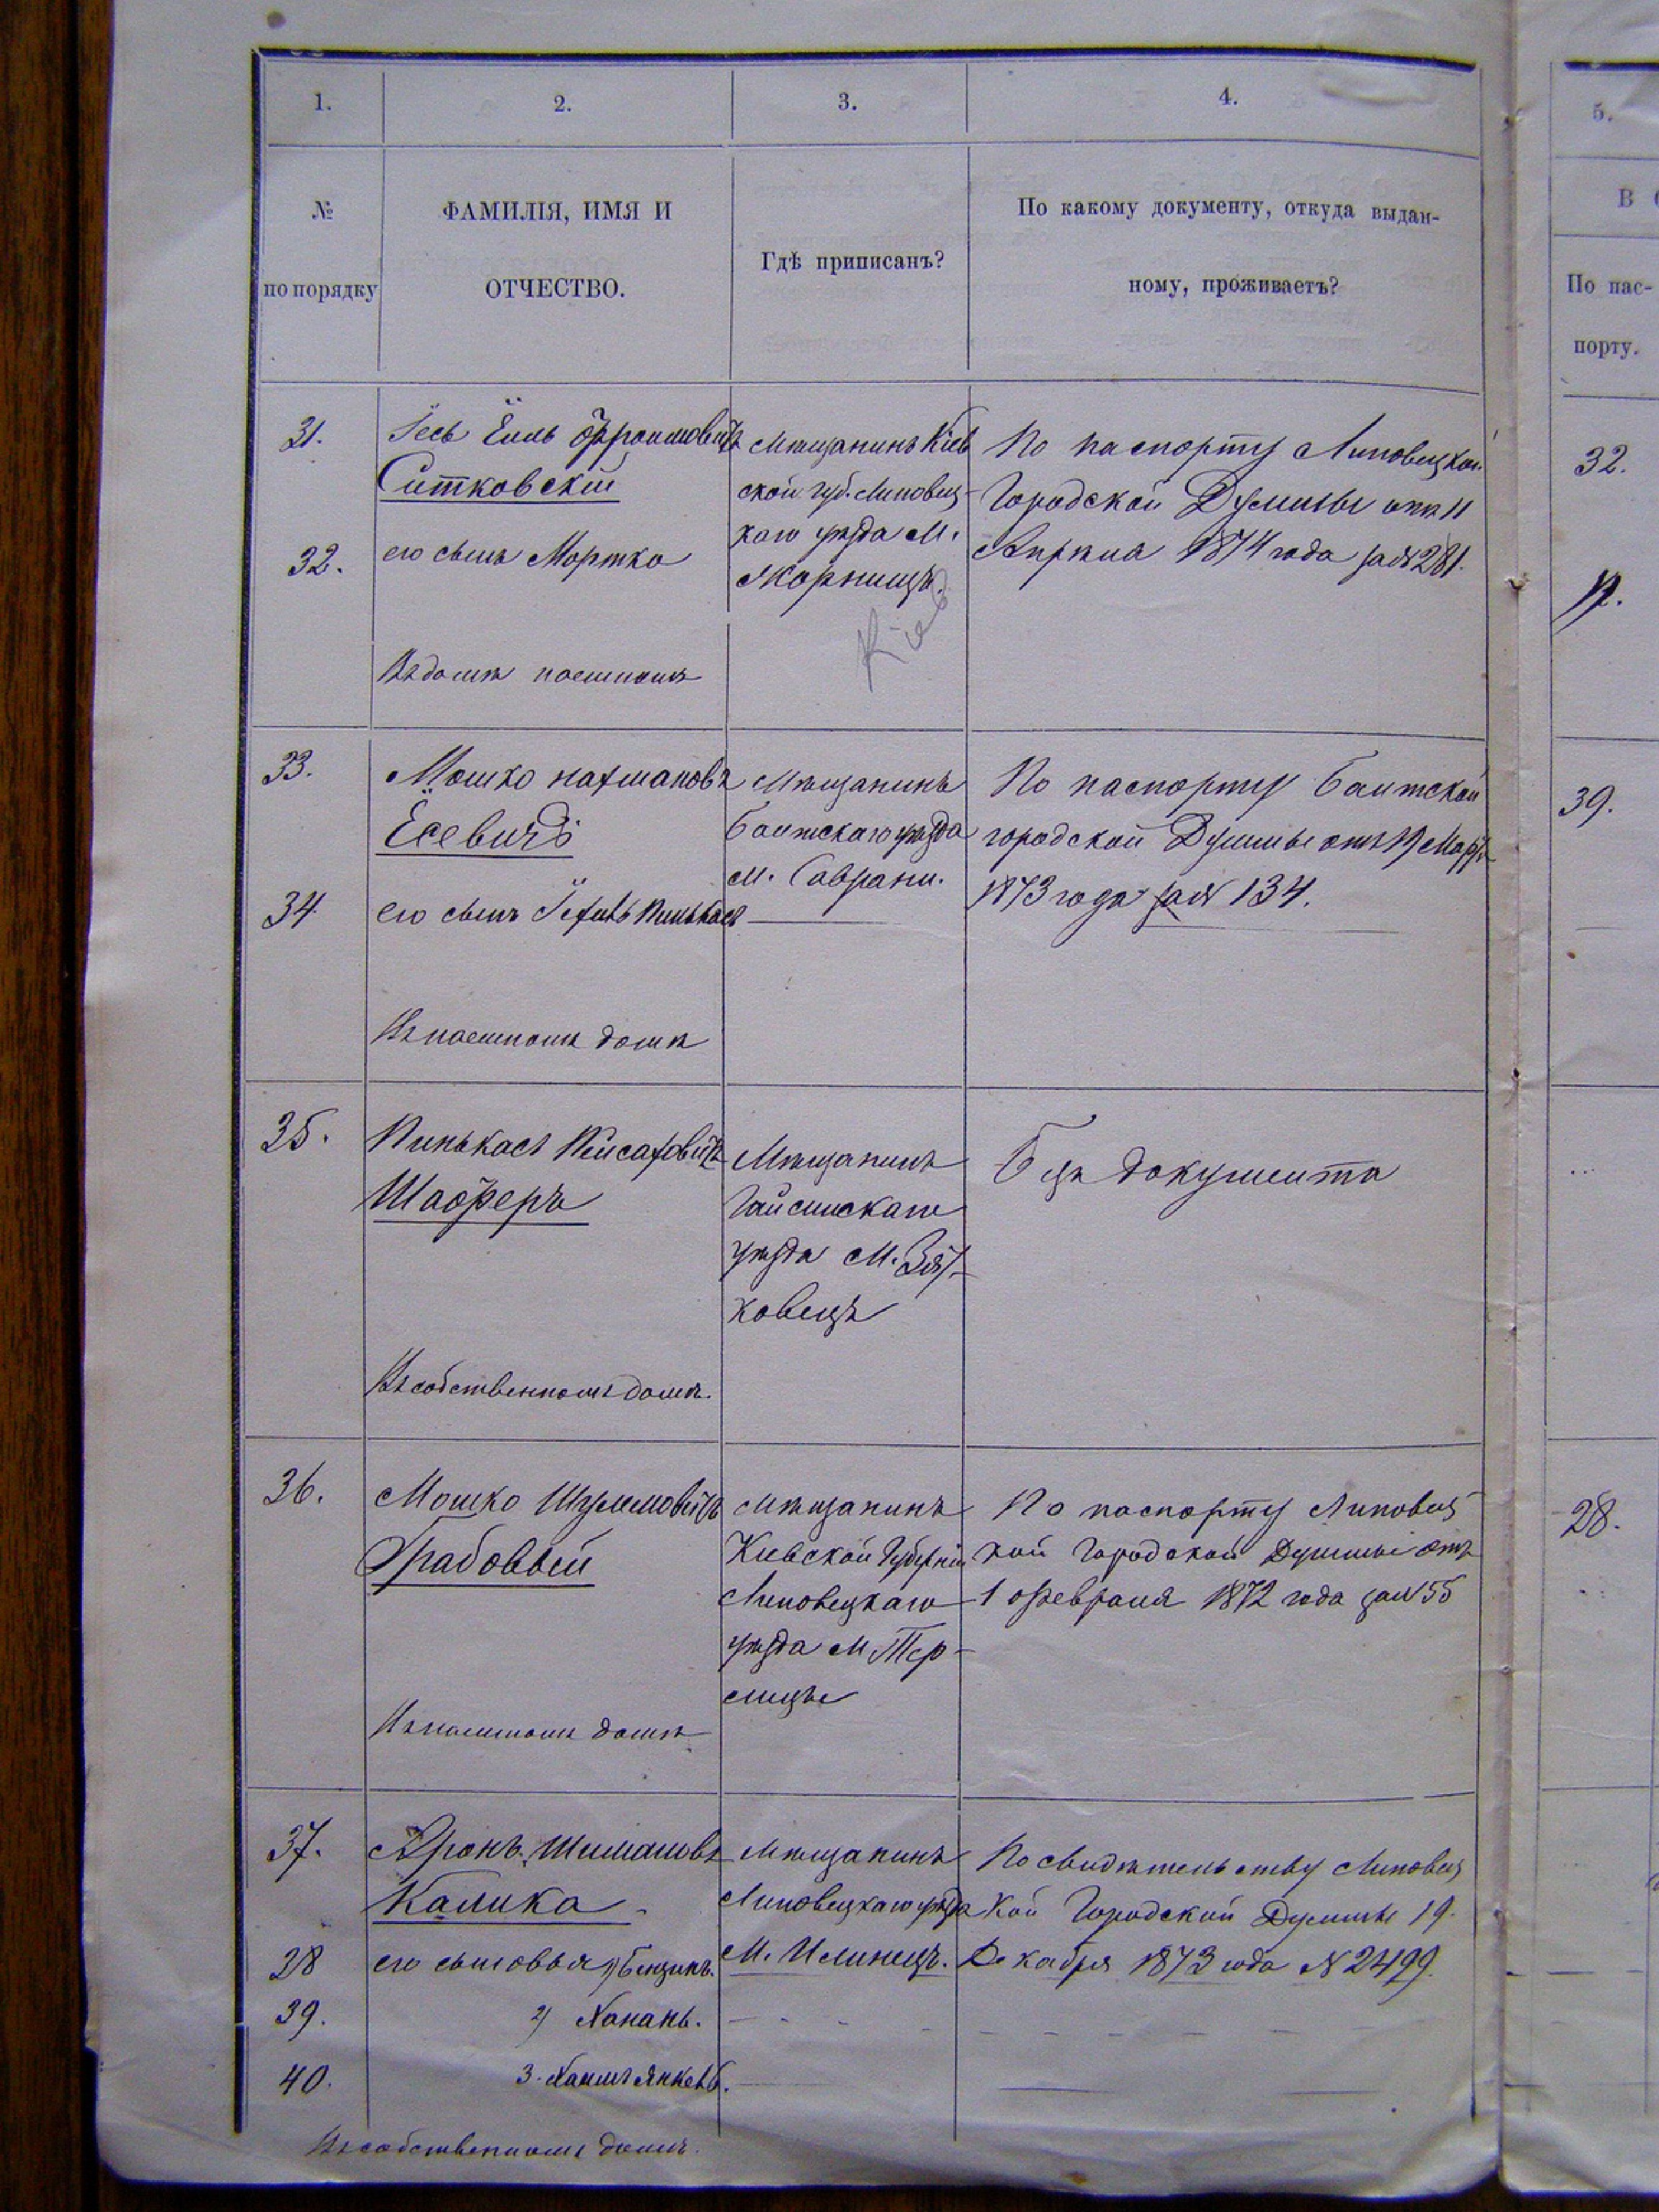 1.
2.
3.
4.
5.
№
по порядку
ФАМИЛІЯ, ИМЯ И
ОТЧЕСТВО.
Гдѣ приписанъ?
По какому документу, откуда выдан-
ному, проживаетъ?
В
По пас-
порту.
31.
Ёсь Ёиль Ффроимовичъ
Ситковскій
32.
его сынъ Мортко
Въ домѣ наемномъ
Мѣщанинъ Кіев
ской губ. Липовец-
каго уѣзда М.
Жорнищъ.
Кіев
По паспорту Липовецкой
Городской Думы отъ 11
Апрѣля 1874 года за № 281.
32.
11.
33.
Мошко Нахмановъ
Ёсевичъ
34
его сынъ Пинькасъ
Въ наемномъ домѣ
Мѣщанинъ
Балтскаго уѣзда
М. Саврани.
По паспорту Балтской
городской Думы отъ 19 Марта
1873 года за № 134.
39.
35.
Пинькасъ Пейсаховичъ
Шаферъ
Въ собственномъ домѣ.
Мѣщанинъ
Гайсинскаго
уѣзда М. Зят-
ковецъ
Безъ документа
36.
Мошко Шулимовичъ
Грабовый
Въ наемномъ домѣ
Мѣщанинъ
Кіевской Губерніи
Липовецкаго
уѣзда М.
По паспорту Липовец
кой Городской Думы отъ
1 Февраля 1872 года за № 55
28.
37.
Аронъ Шимановъ
Калика
28
его сыновья 1) Бенціинъ.
39.
2) Хонань.
40.
3. Хаимъ Янкель.
Въ собственномъ домѣ.
Мѣщанинъ
Липовецкаго уѣзда
М. Илинецъ.
По свидѣтельству Липовец
кой Городской Думы 19
Декабря 1873 года № 2499.